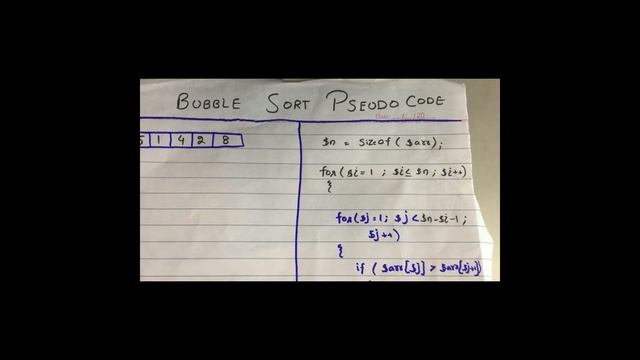 BUBBLE SORT PSEUDO CODE
Date: / /20
5 1 4 2 8
$n = sizeof ( $arr);
for( $i=1 ; $i≤ $n; $i++)
{
for( $j=1; $j < $n-$i-1 ;
$j++)
{
if ( $arr[$j] > $arr[$j+1])